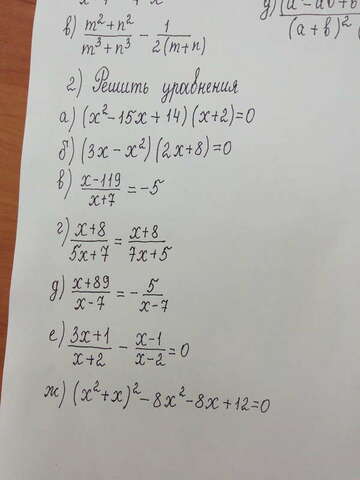 в) (m² + n²)/(m³ + n³) - 1/(2(m+n))
2) Решить уравнения
а) (x² - 15x + 14)(x + 2) = 0
б) (3x - x²)(2x + 8) = 0
в) (x - 119)/(x + 7) = -5
г) (x + 8)/(5x + 7) = (x + 8)/(7x + 5)
д) (x + 89)/(x - 7) = - 5/(x - 7)
е) (3x + 1)/(x + 2) - (x - 1)/(x - 2) = 0
ж) (x² + x)² - 8x² - 8x + 12 = 0